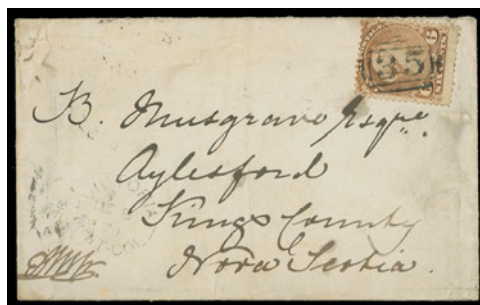 35
B. Musgrave Esqre.
Aylesford
Kings County
Nova Scotia.